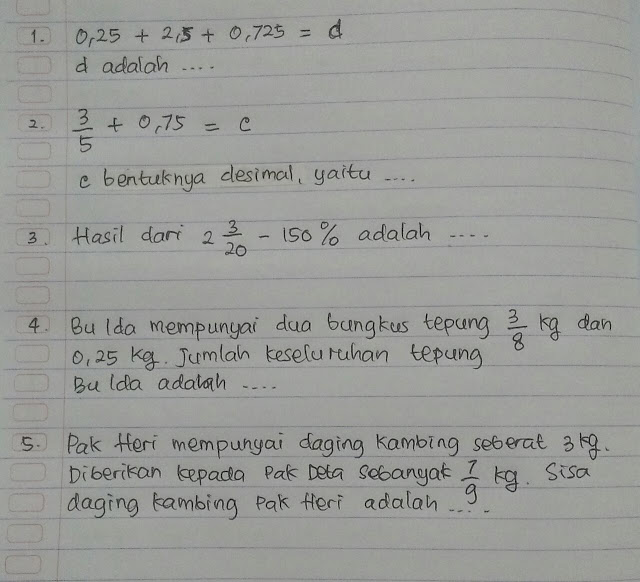 1. 0,25 + 2,5 + 0,725 = d
d adalah ....
2. 3/5 + 0,75 = c
c bentuknya desimal, yaitu ....
3. Hasil dari 2 3/20 - 150% adalah ....
4. Bu Ida mempunyai dua bungkus tepung 3/8 kg dan
0,25 kg. Jumlah keseluruhan tepung
Bu Ida adalah ....
5. Pak Heri mempunyai daging kambing seberat 3 kg.
Diberikan kepada Pak Deta sebanyak 7/9 kg. Sisa
daging kambing Pak Heri adalah ....